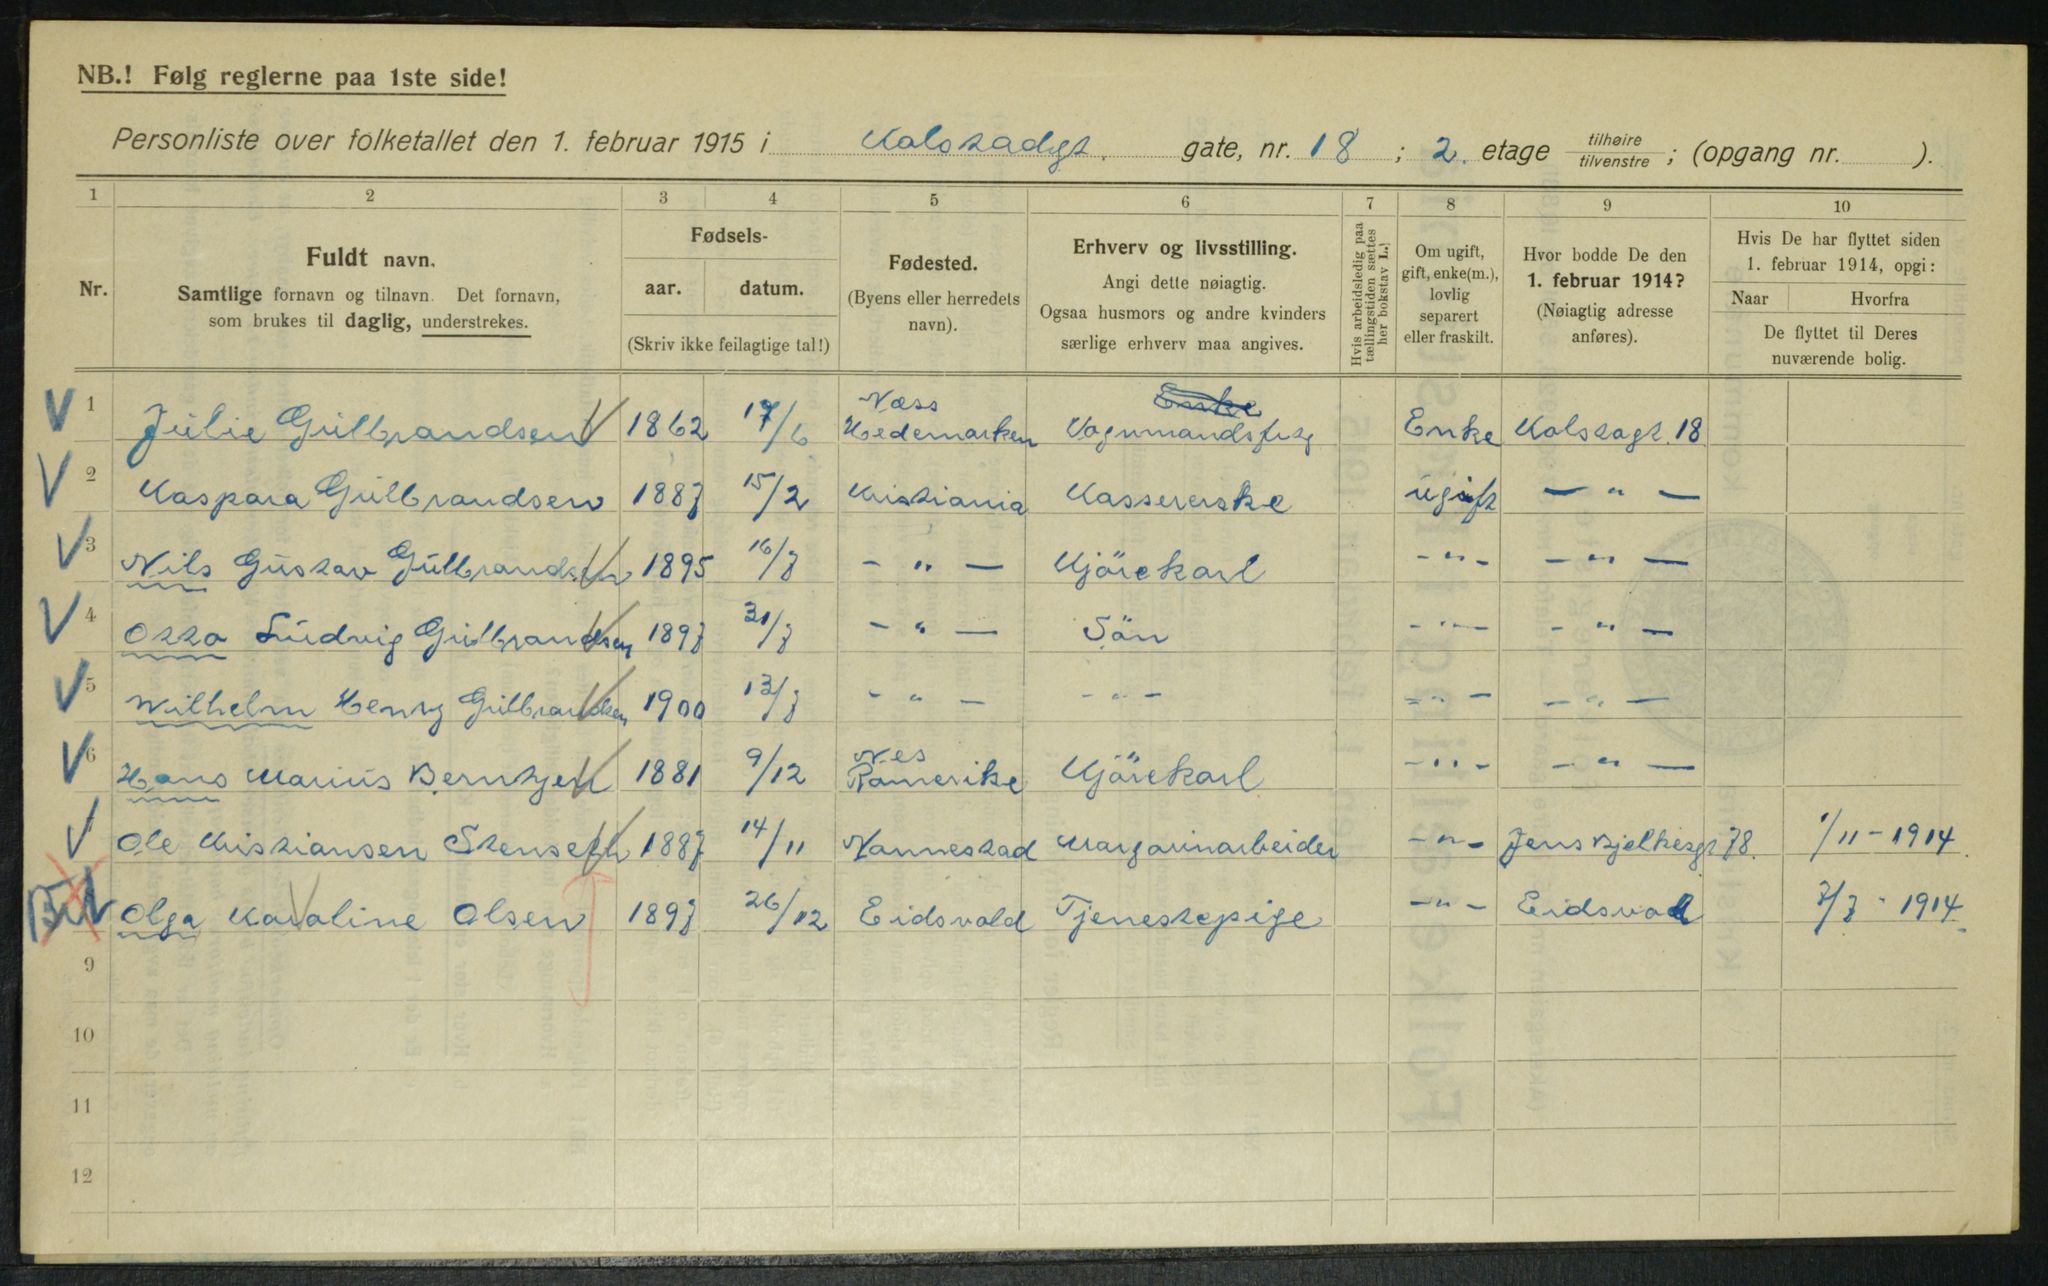 NB.! Følg reglerne paa 1ste side!
Personliste over folketallet den 1. februar 1915 i Kalstadgt. gate, nr. 18; 2. etage tilhøire tilvenstre; (opgang nr. ).
1 2 3 4 5 6 7 8 9 10
Nr.
Fuldt navn.
Samtlige fornavn og tilnavn. Det fornavn,
som brukes til daglig, understrekes.
Fødsels-
aar. datum.
(Skriv ikke feilagtige tal!)
Fødested.
(Byens eller herredets
navn).
Erhverv og livsstilling.
Angi dette nøiagtig.
Ogsaa husmors og andre kvinders
særlige erhverv maa angives.
Hvis arbeidsledig paa
tællingstiden sættes
her bokstav L.!
Om ugift,
gift, enke(m.),
lovlig
separert
eller fraskilt.
Hvor bodde De den
1. februar 1914?
(Nøiagtig adresse
anføres).
Hvis De har flyttet siden
1. februar 1914, opgi:
Naar Hvorfra
De flyttet til Deres
nuværende bolig.
1 Julie Gulbrandsen 1862 17/6 Næss Hedemarken Enke Vognmandsfrtg Enke Kalstagt. 18
2 Kaspara Gulbrandsen 1887 15/2 Kristiania Kassererske ugift — " —
3 Nils Gustav Gulbrandsen 1895 16/7 — " — Kjörekarl — " — — " —
4 Otto Ludvig Gulbrandsen 1897 31/7 — " — Sön — " — — " —
5 Wilhelm Henry Gulbrandsen 1900 13/7 — " — — " — — " — — " —
6 Hans Marius Berntzen 1881 9/12 Nes Romerike Kjörekarl — " — — " —
Ole Kristiansen Stenseth 1887 14/11 Nannestad Margarinarbeider — " — Jens Bjelkesgt 78. 1/11 - 1914.
Olga Karaline Olsen 1897 26/12 Eidsvold Tjenestepige — " — Eidsvold 7/7 - 1914.
9
10
11
12